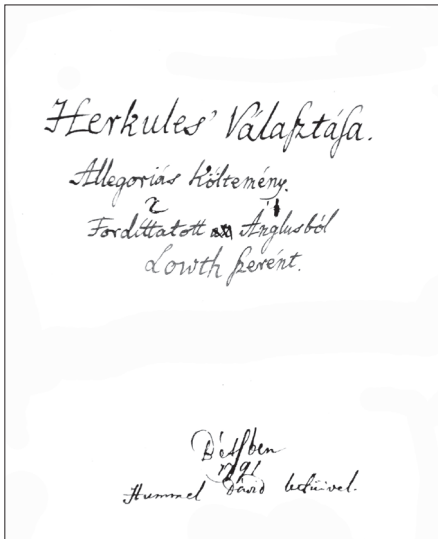 Herkules' Válaſztáſa.
Allegoriás Költemény.
Fordíttatott Ánglusból
Lowth ſzerént.
Bétſben
1791
Hummel Dávid betűivel.